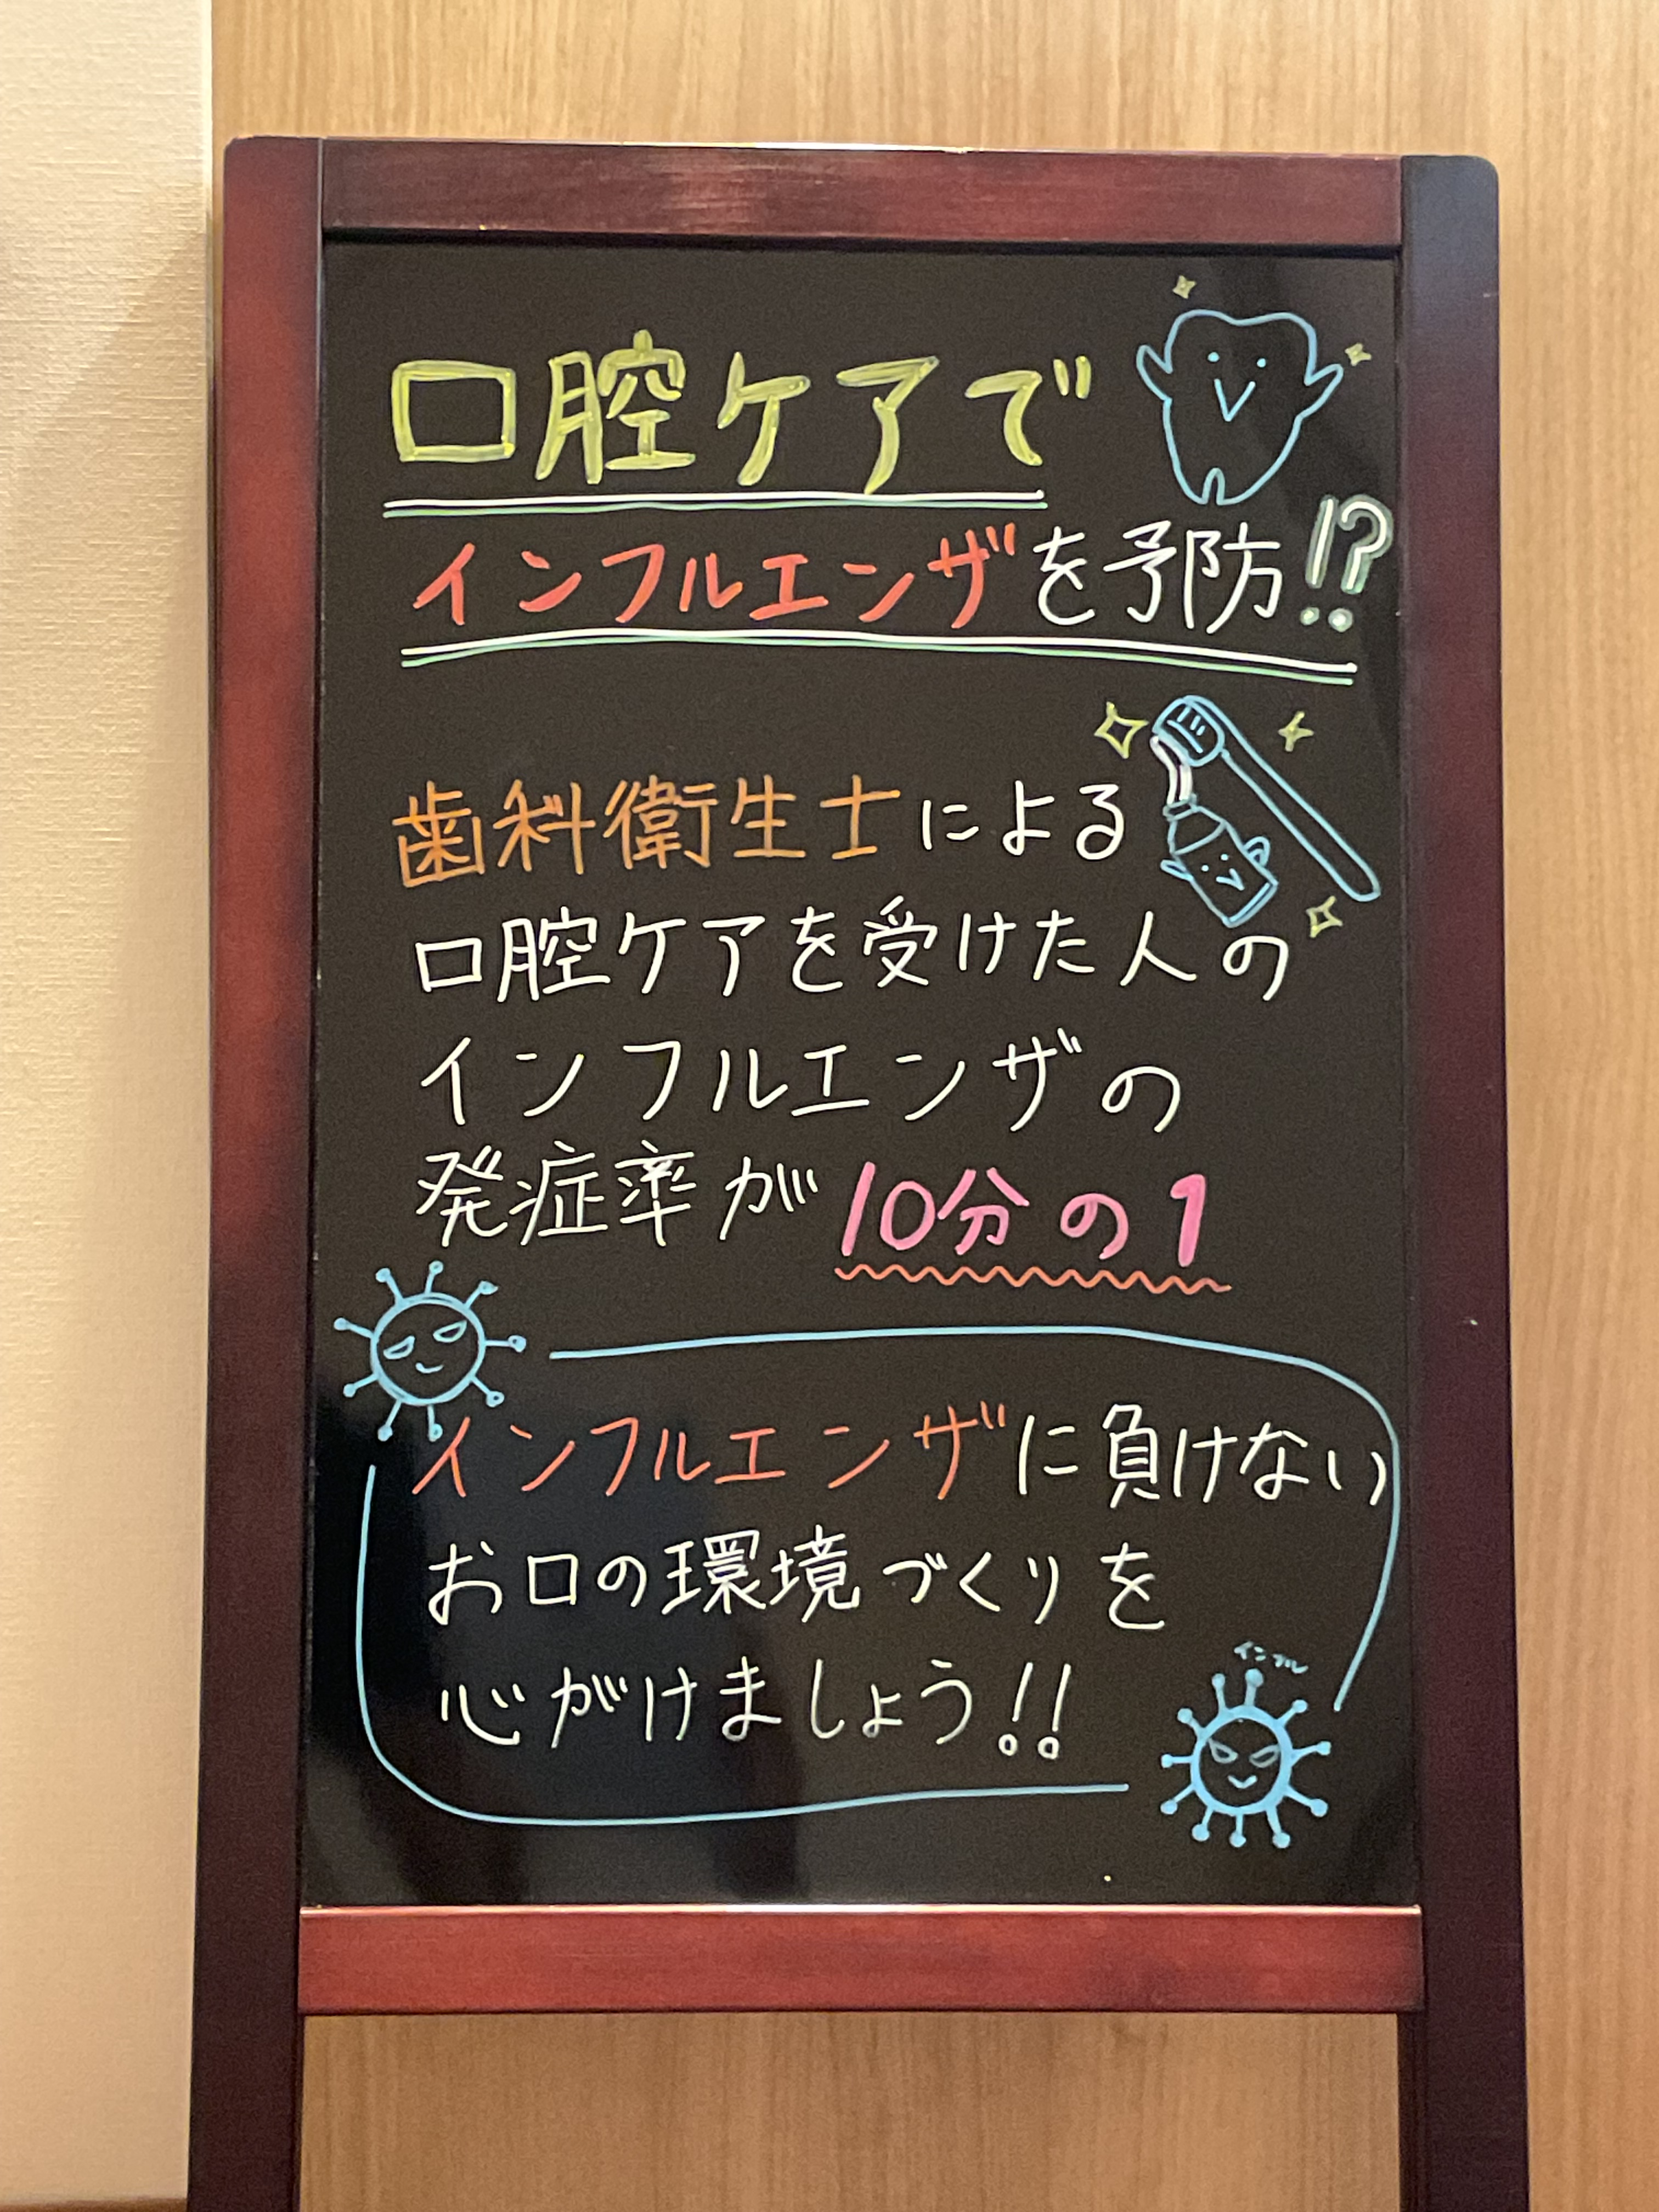 口腔ケアで
インフルエンザを予防!?
歯科衛生士による
口腔ケアを受けた人の
インフルエンザの
発症率が10分の1
インフルエンザに負けない
お口の環境づくりを
心がけましょう!!
インフル